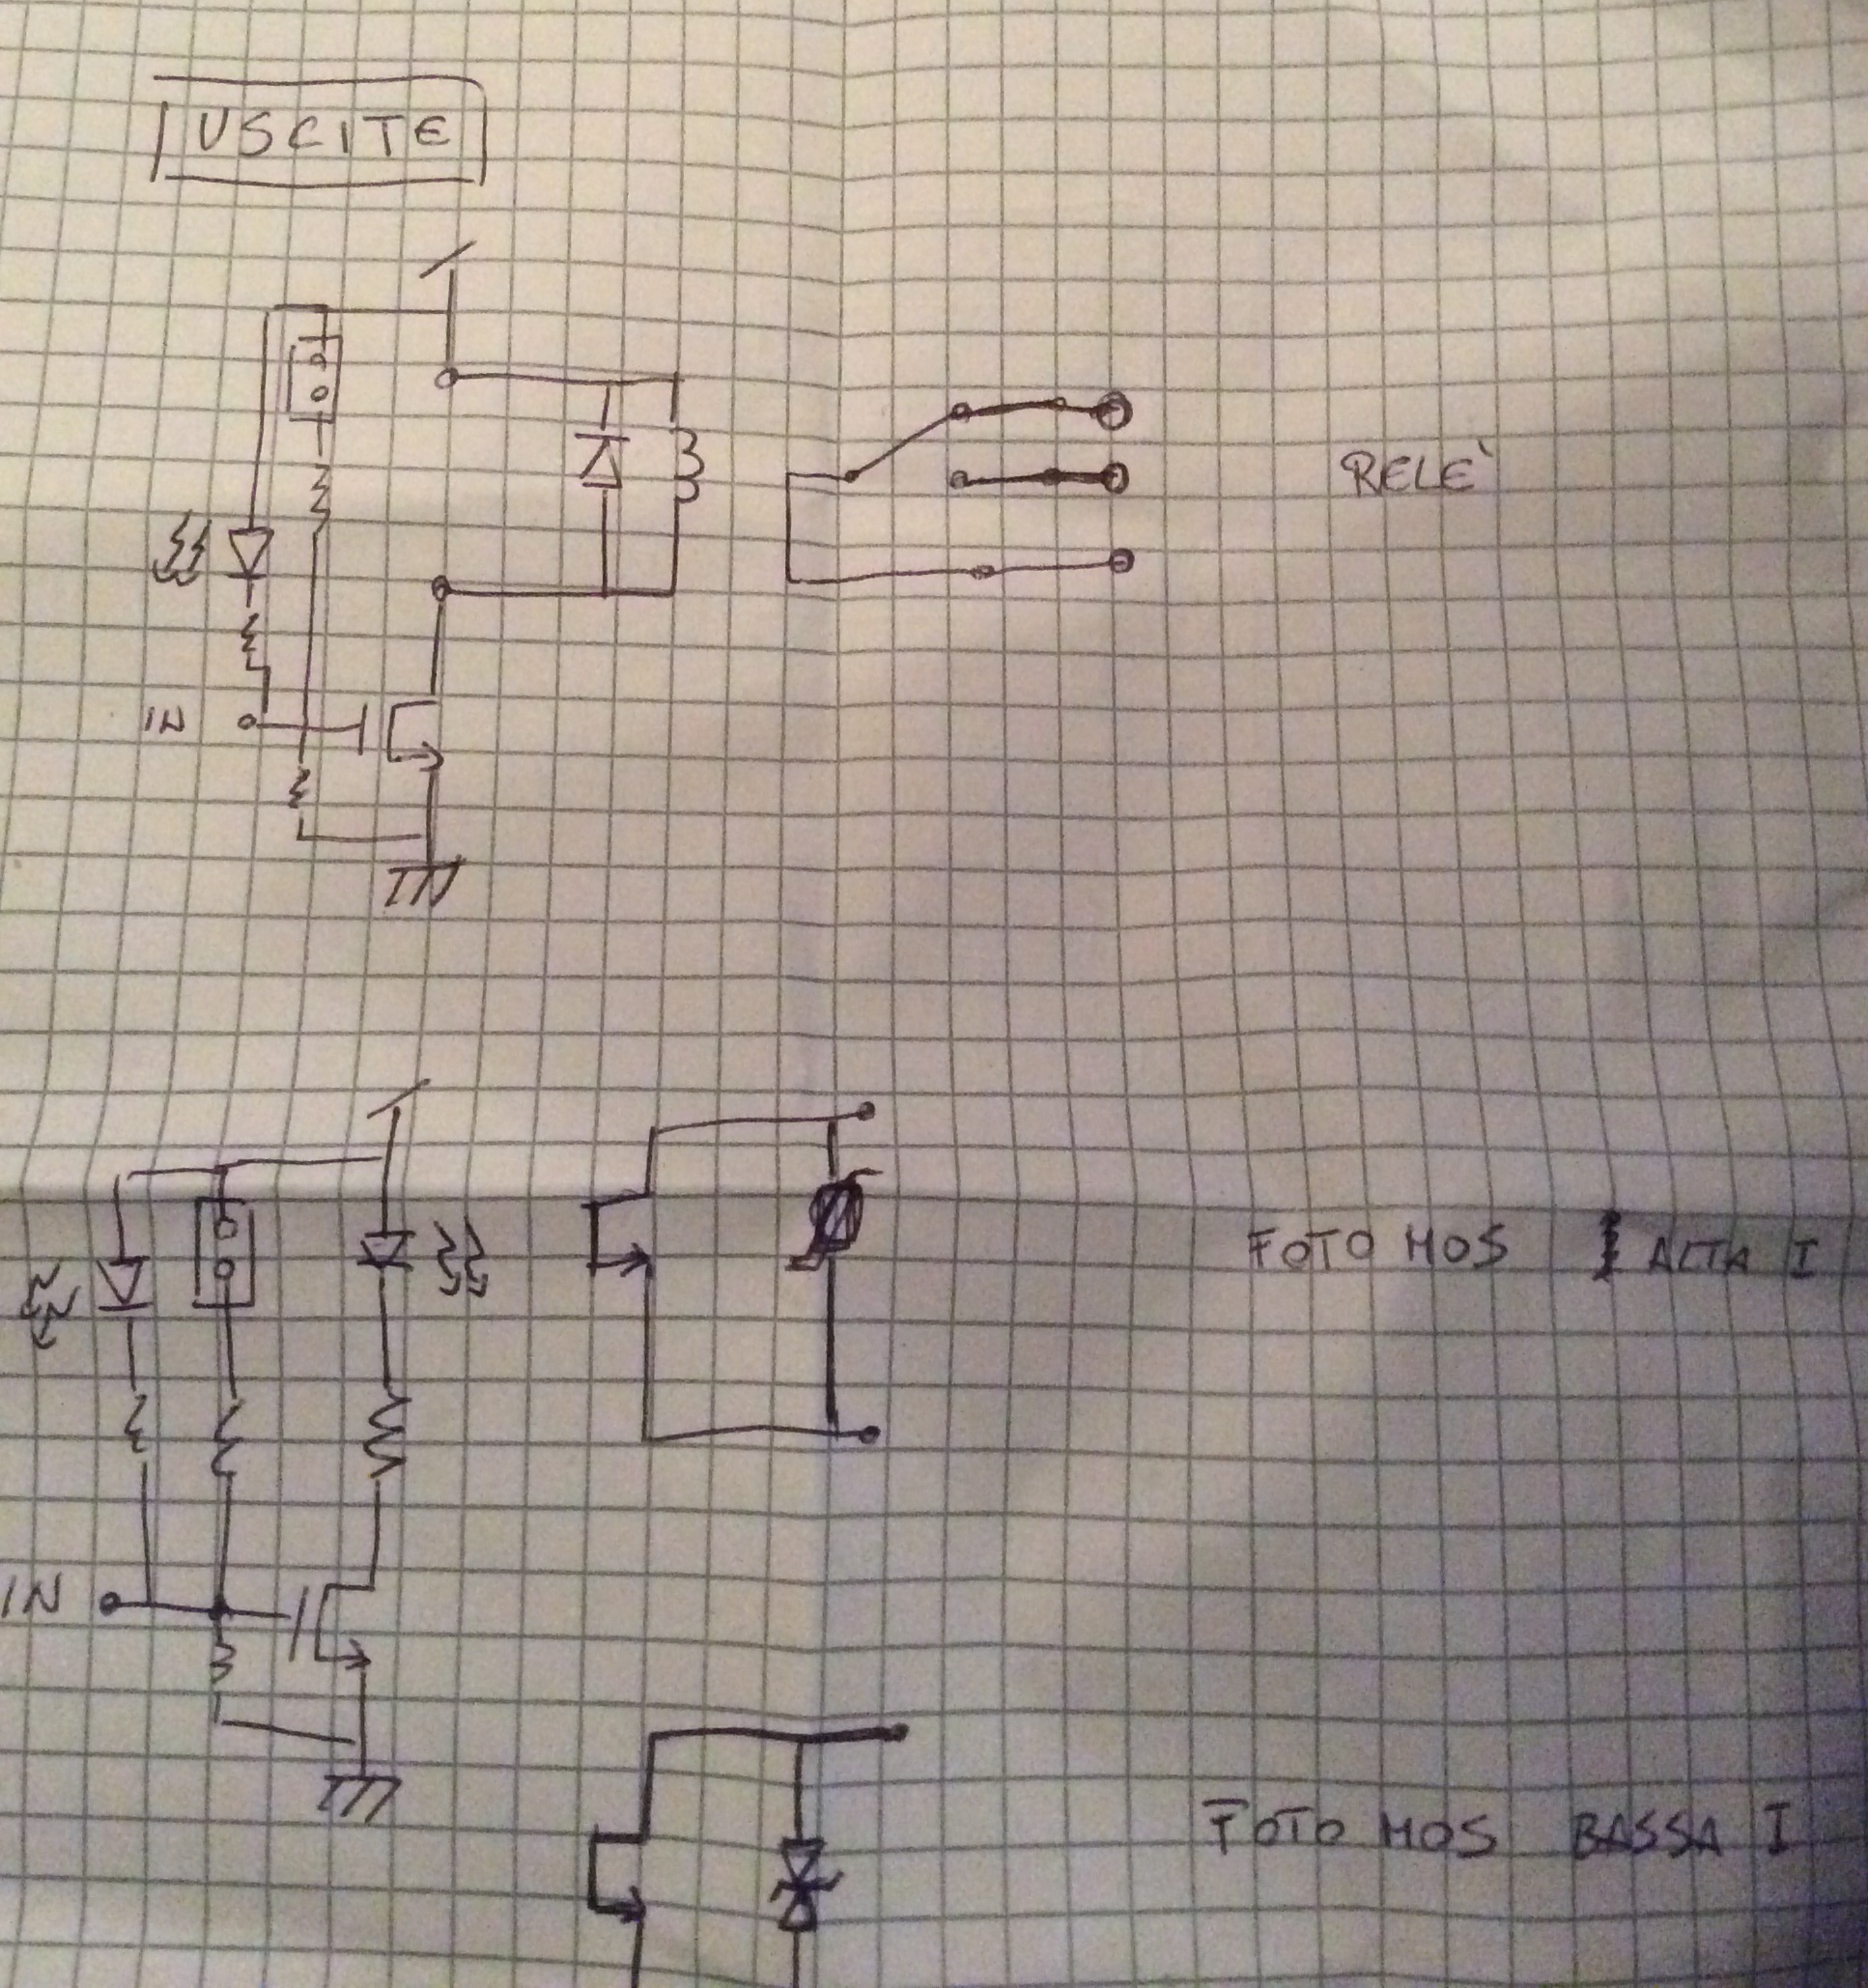 USCITE
RELE'
IN
FOTO MOS ALTA I
IN
FOTO MOS BASSA I